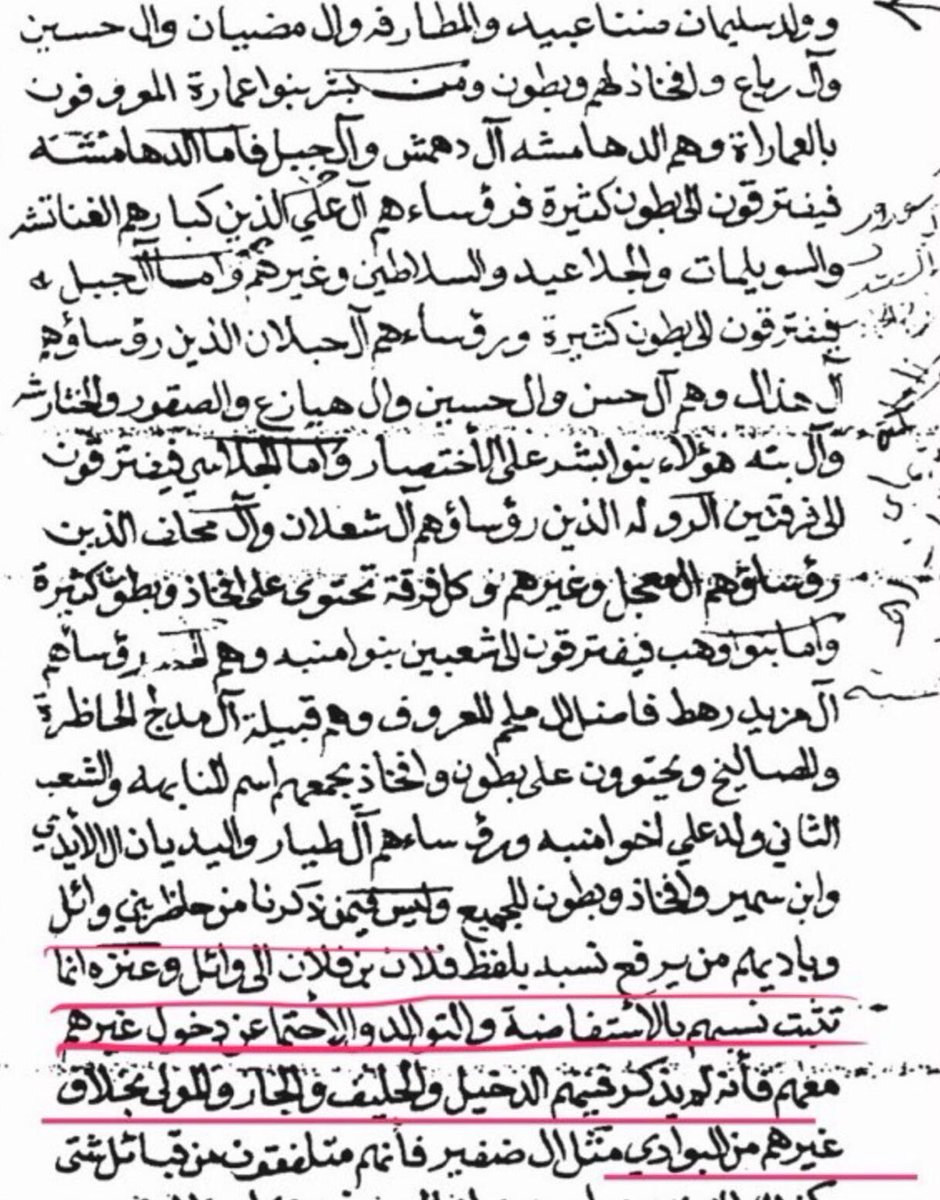 وولد سليمان ضنا عبيد والمطارفه وال مضيان وال حسين
وآل رباع ولافخاذ لهم وبطون ومن بشر بنوا عمارة المعروفون
بالعماراة وهم الدهامشه آل دهمش وآل جبل فاما الدهامشه
فيفترقون الى بطون كثيرة فرؤساءهم آل علي الذين كبارهم
والسويلمات والجلاعيد والسلاطين وغيرهم واما آل جبل
فيفترقون الى بطون كثيرة ورؤساءهم آل حبلان الذين رؤساؤهم
آل هذال وهم آل حسن وال حسين وال هيازع والصقور
وآل بته هؤلاء بنوا بشر على الأختصار واما الجلاس فيفترقون
الى فرقتين الروله الذين رؤساؤهم آل شعلان وآل محلف الذين
رؤساؤهم ال معجل وغيرهم وكل فرقة تحتوى على افخاذ وبطون كثيرة
واما بنوا وهب فيفترقون الى شعبين بنوا منبه وهم رؤساهم
آل مزيد رهط فاضل ال ملحم المعروف وهم قبيلة آل مدلج الحاظرة
والمصاليخ ويحتوون على بطون وافخاذ يجمعهم اسم المنابهه والشعب
الثاني ولد علي اخوا منبه ورؤساءهم آل طيار واليديان ال
وابن سمير ولافخاذ وبطون للجميع وليس فيمن ذكرنا من حاظر بني وائل
وباديهم من يرفع نسبه بلفظ فلان بن فلان الى وائل وعنزه انما
تثبت نسبهم بالأستفاضة والتوالد والأحتما عن دخول غيرهم
معهم فأنه لم يذكر فيهم الدخيل والحليف والجار والمولى بخلاف
غيرهم من البوادي مثل ال ضفير فأنهم متلفقون من قبائل شتى